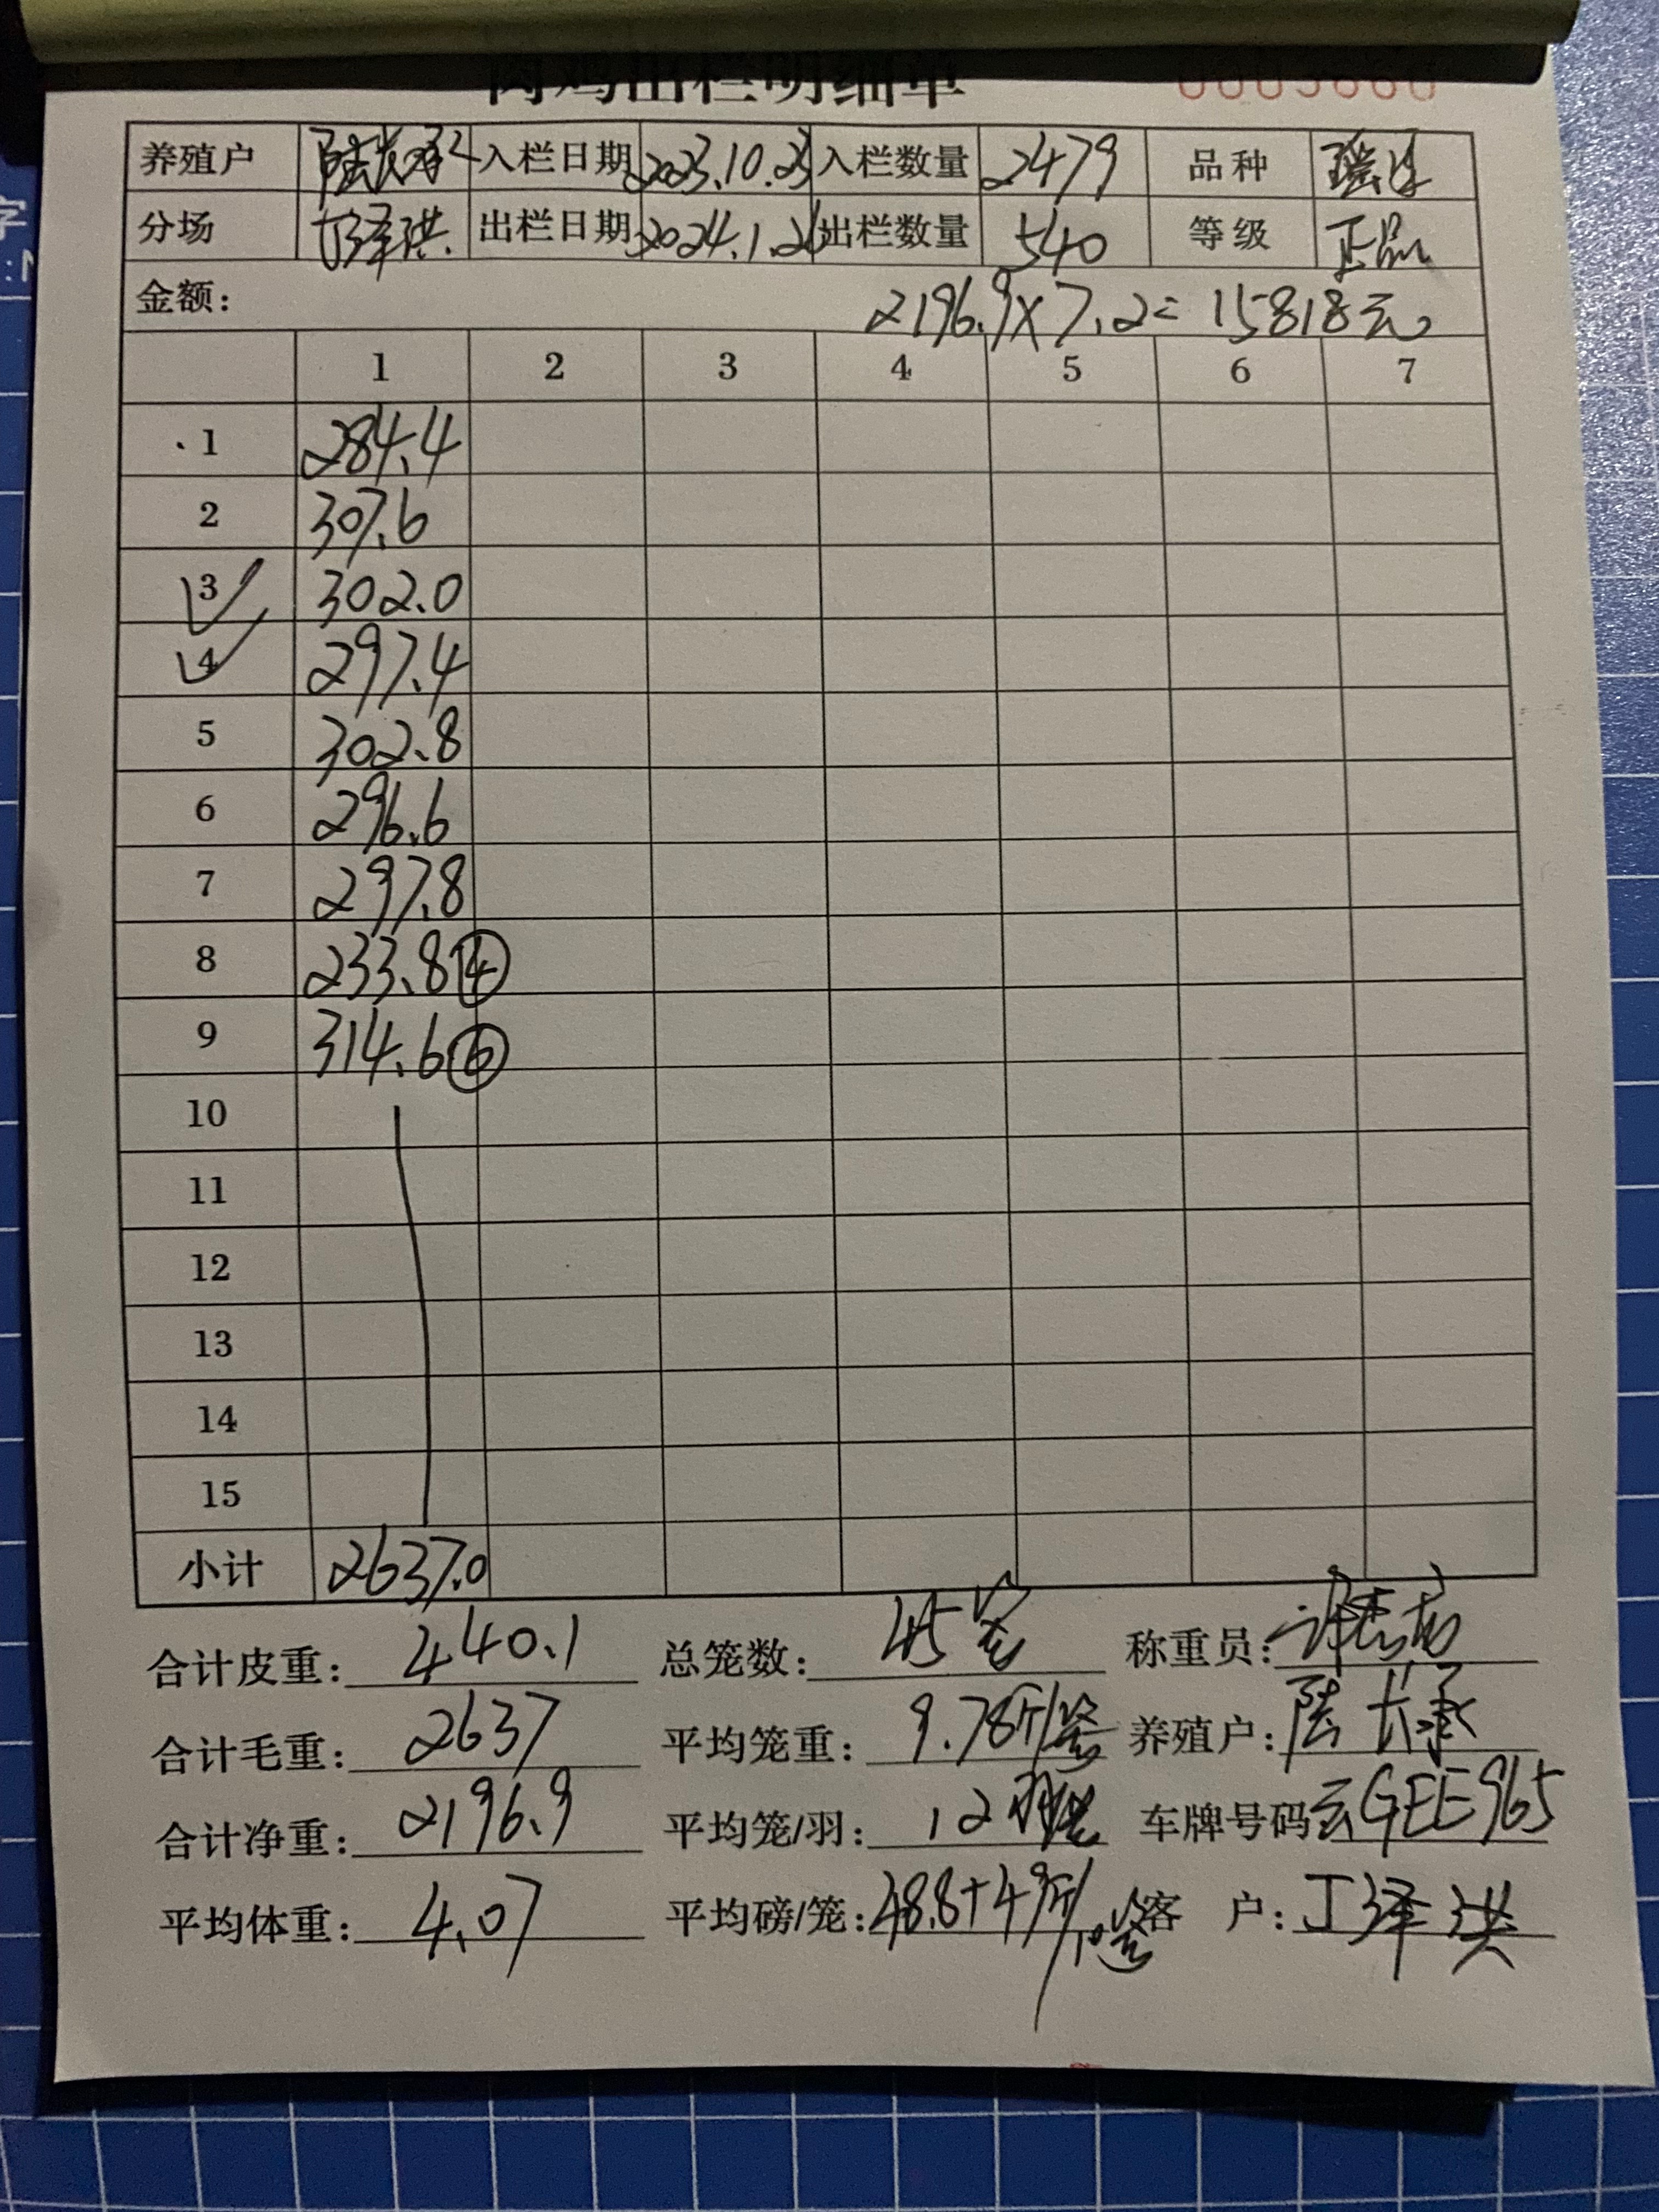 肉鸡出栏明细单 0003666
养殖户 陆长承 入栏日期 2023.10.23 入栏数量 2479 品种
分场 丁泽洪 出栏日期 2024.1.26 出栏数量 540 等级 正品
金额: 2196.9×7.2=15818元
1 2 3 4 5 6 7
1 284.4
2 307.6
3 302.0
4 297.4
5 302.8
6 296.6
7 297.8
8 233.8 ④
9 314.6 ⑥
10
11
12
13
14
15
小计 2637.0
合计皮重: 440.1 总笼数: 45笼 称重员:
合计毛重: 2637 平均笼重: 9.78斤/笼 养殖户: 陆长承
合计净重: 2196.9 平均笼/羽: 12羽/笼 车牌号码 云GEE965
平均体重: 4.07 平均磅/笼: 48.8+4斤/笼 客户: 丁泽洪